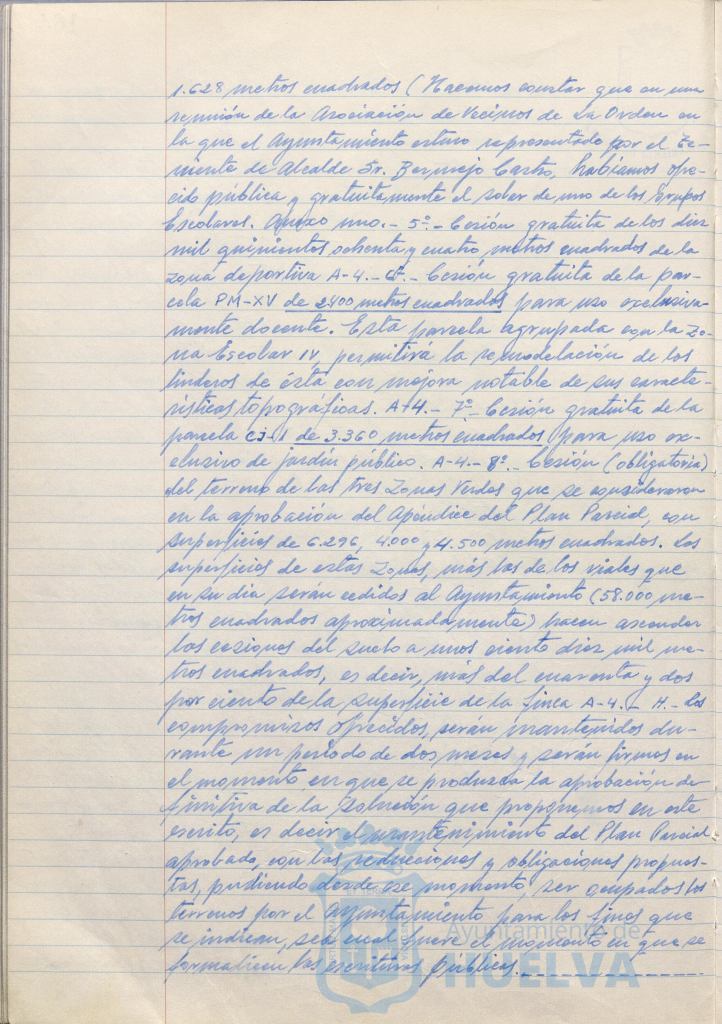 1.628 metros cuadrados (Hacemos constar que en una
reunión de la Asociación de Vecinos de La Orden en
la que el Ayuntamiento estuvo representado por el Te-
niente de Alcalde Sr. Bermejo Castro, habíamos ofre-
cido pública y gratuitamente el solar de uno de los Grupos
Escolares. Anexo uno.- 5º.- Cesión gratuita de los diez
mil quinientos ochenta y cuatro metros cuadrados de la
zona deportiva A-4.- 6º.- Cesión gratuita de la par-
cela PM-XV de 2400 metros cuadrados para uso exclusiva-
mente docente. Esta parcela agrupada con la Zo-
na Escolar IV, permitirá la remodelación de los
linderos de ésta con mejora notable de sus caracte-
rísticas topográficas. A-4.- 7º- Cesión gratuita de la
parcela CJ-1 de 3.360 metros cuadrados para uso ex-
clusivo de jardín público. A-4.- 8º.- Cesión (obligatoria)
del terreno de las tres Zonas Verdes que se consideraron
en la aprobación del Apéndice del Plan Parcial, con
superficies de 6.296, 4.000 y 4.500 metros cuadrados. Las
superficies de estas Zonas, más las de los viales que
en su día serán cedidos al Ayuntamiento (58.000 me-
tros cuadrados aproximadamente) hacen ascender
las cesiones del suelo a unos ciento diez mil me-
tros cuadrados, es decir, más del cuarenta y dos
por ciento de la superficie de la finca A-4.- H.- Los
compromisos ofrecidos, serán mantenidos du-
rante un período de dos meses y serán firmes en
el momento en que se produzca la aprobación de-
finitiva de la solución que proponemos en este
escrito, es decir el mantenimiento del Plan Parcial
aprobado, con las reducciones y obligaciones propues-
tas, pudiendo desde ese momento, ser ocupados los
terrenos por el Ayuntamiento para los fines que
se indican, sea cual fuere el momento en que se
formalicen las escrituras públicas.
Ayuntamiento de
HUELVA